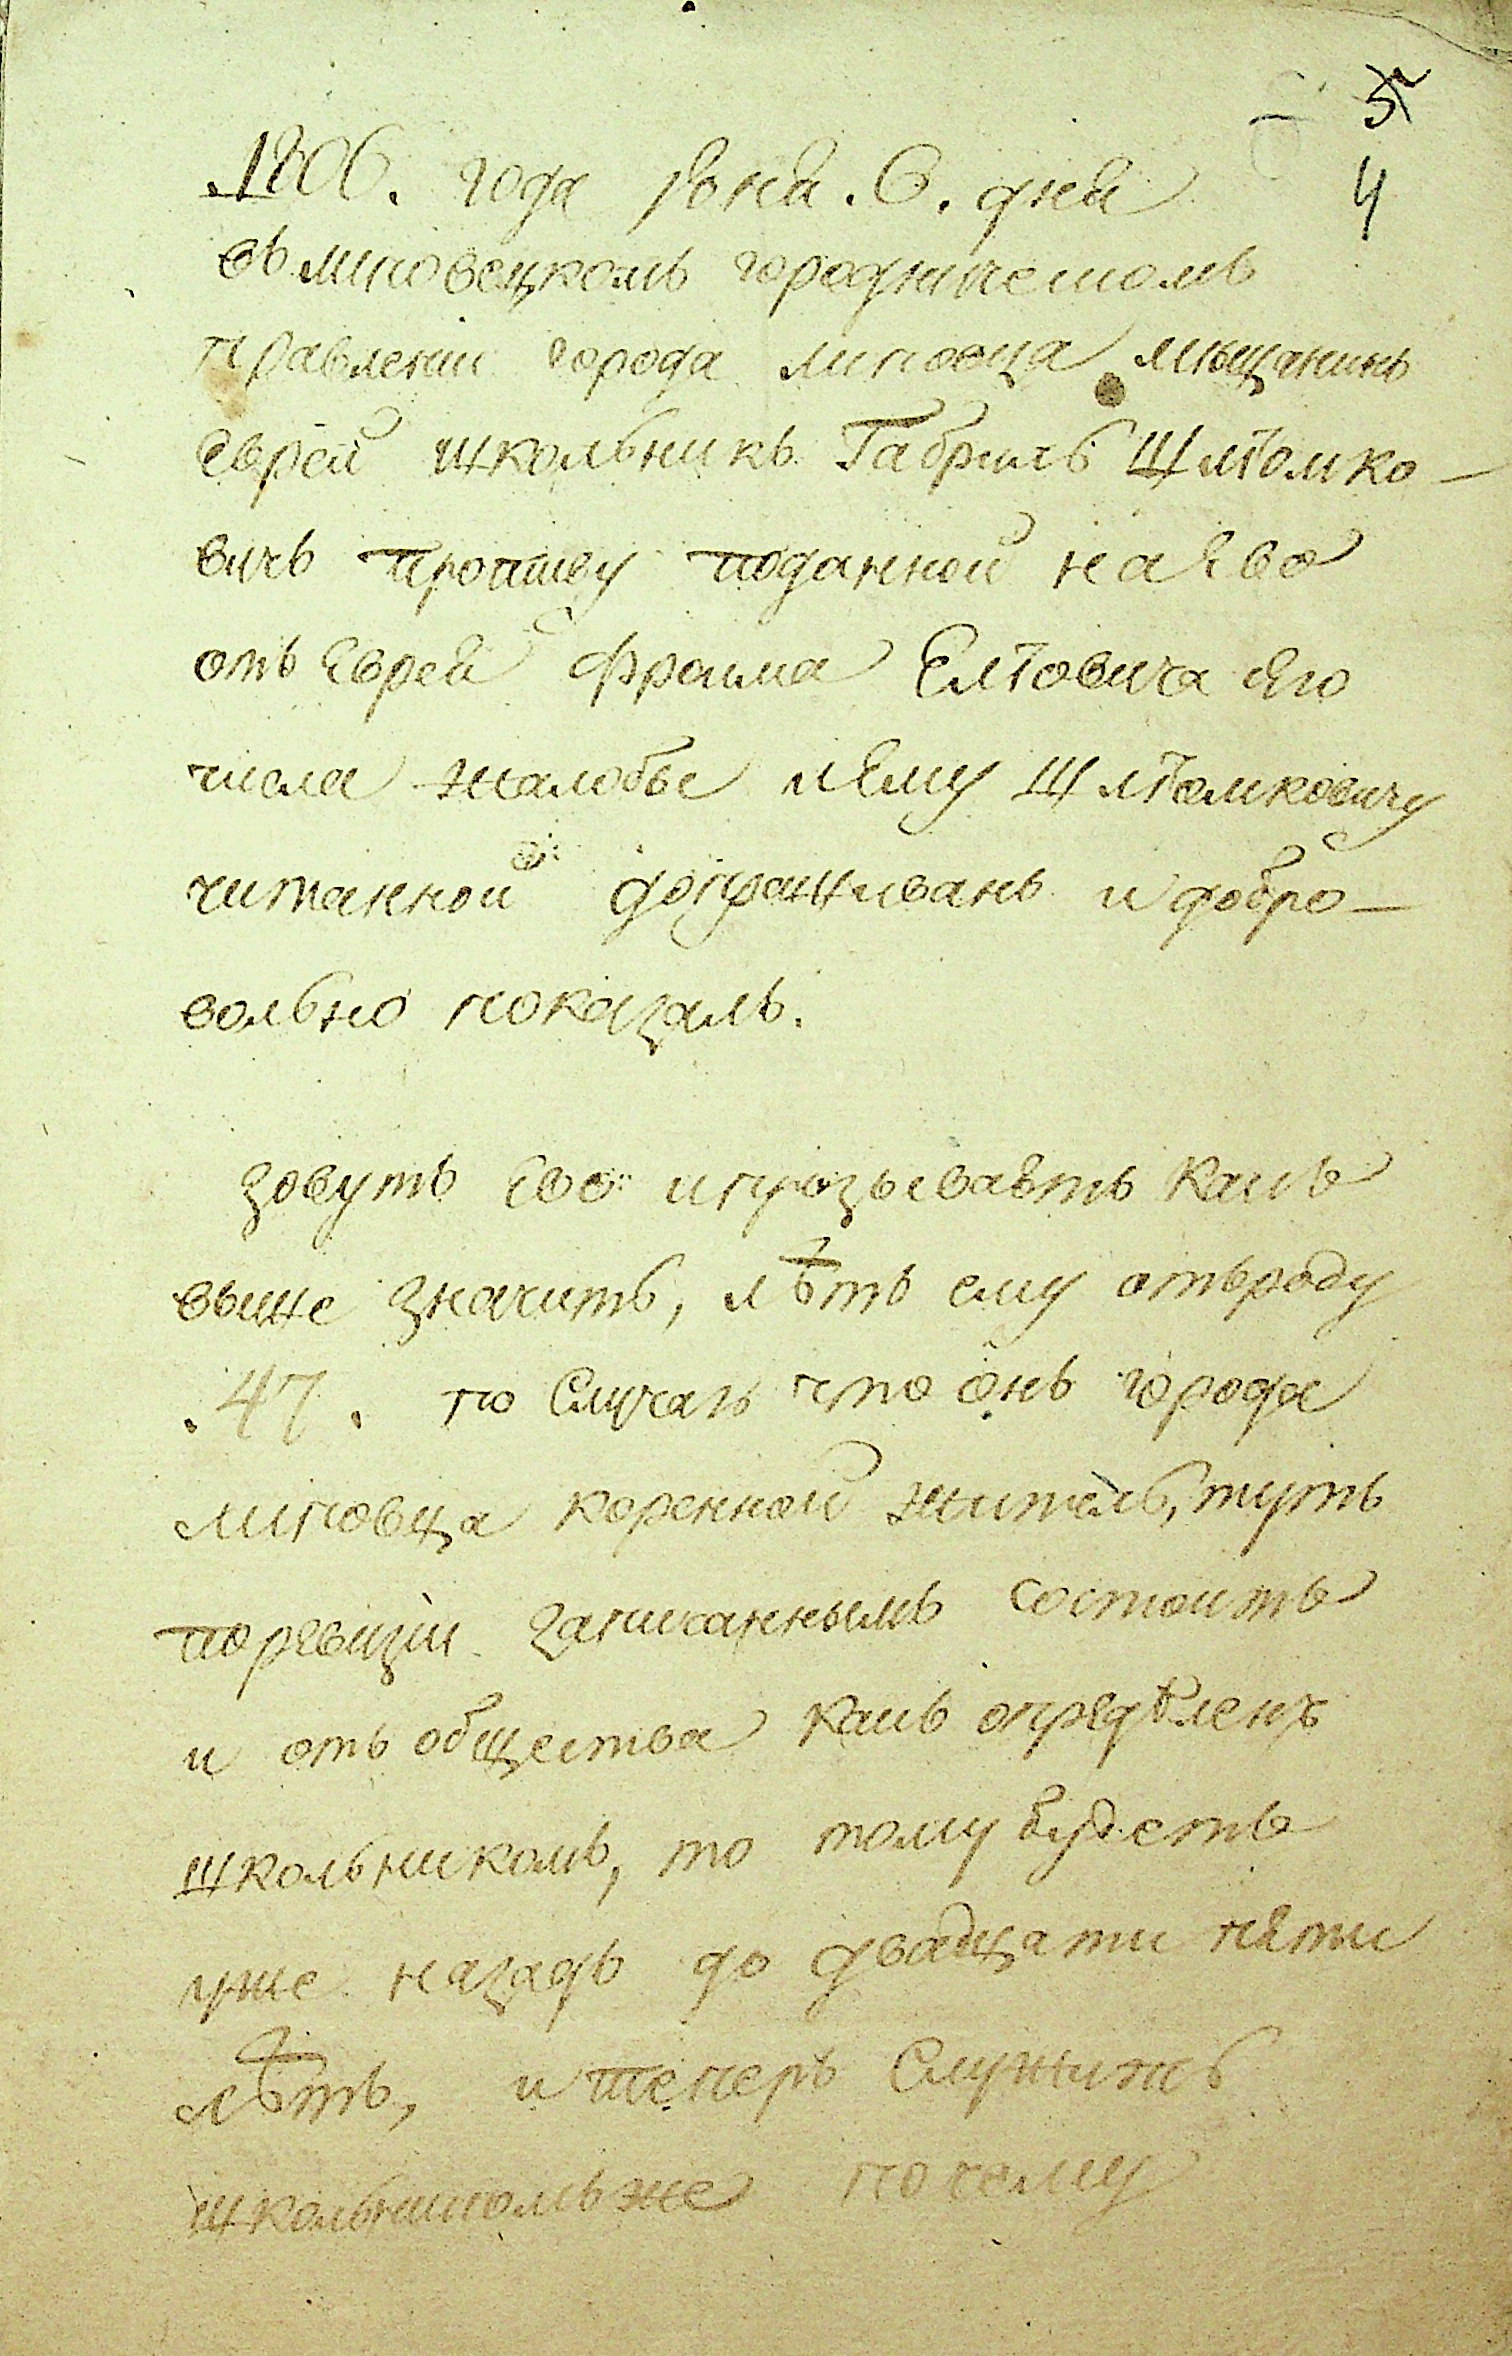 5
4
.1806. года юня .6. дня
въ липовецкомъ городническомъ
правлении города липовца мещанинъ
Еврей школьникъ Габриль Шлiомко-
вичъ противу поданной на Ево
отъ Еврея Фраима Елiовича сего
числа жалобы и ему Шлiомковичу
читанной допрашиванъ и добро-
вольно показалъ.
Зовутъ Ево и прозываютъ какъ
выше значитъ, лѣтъ ему отъ роду
.47. по случаю что онъ города
липовца коренной житель, тутъ
по ревизiи записаннымъ состоитъ
и отъ общества какъ определенъ
школьникомъ, то тому будетъ
уже назадъ до двадцати пяти
лѣтъ, и теперь служитъ
школьникомъ же почему